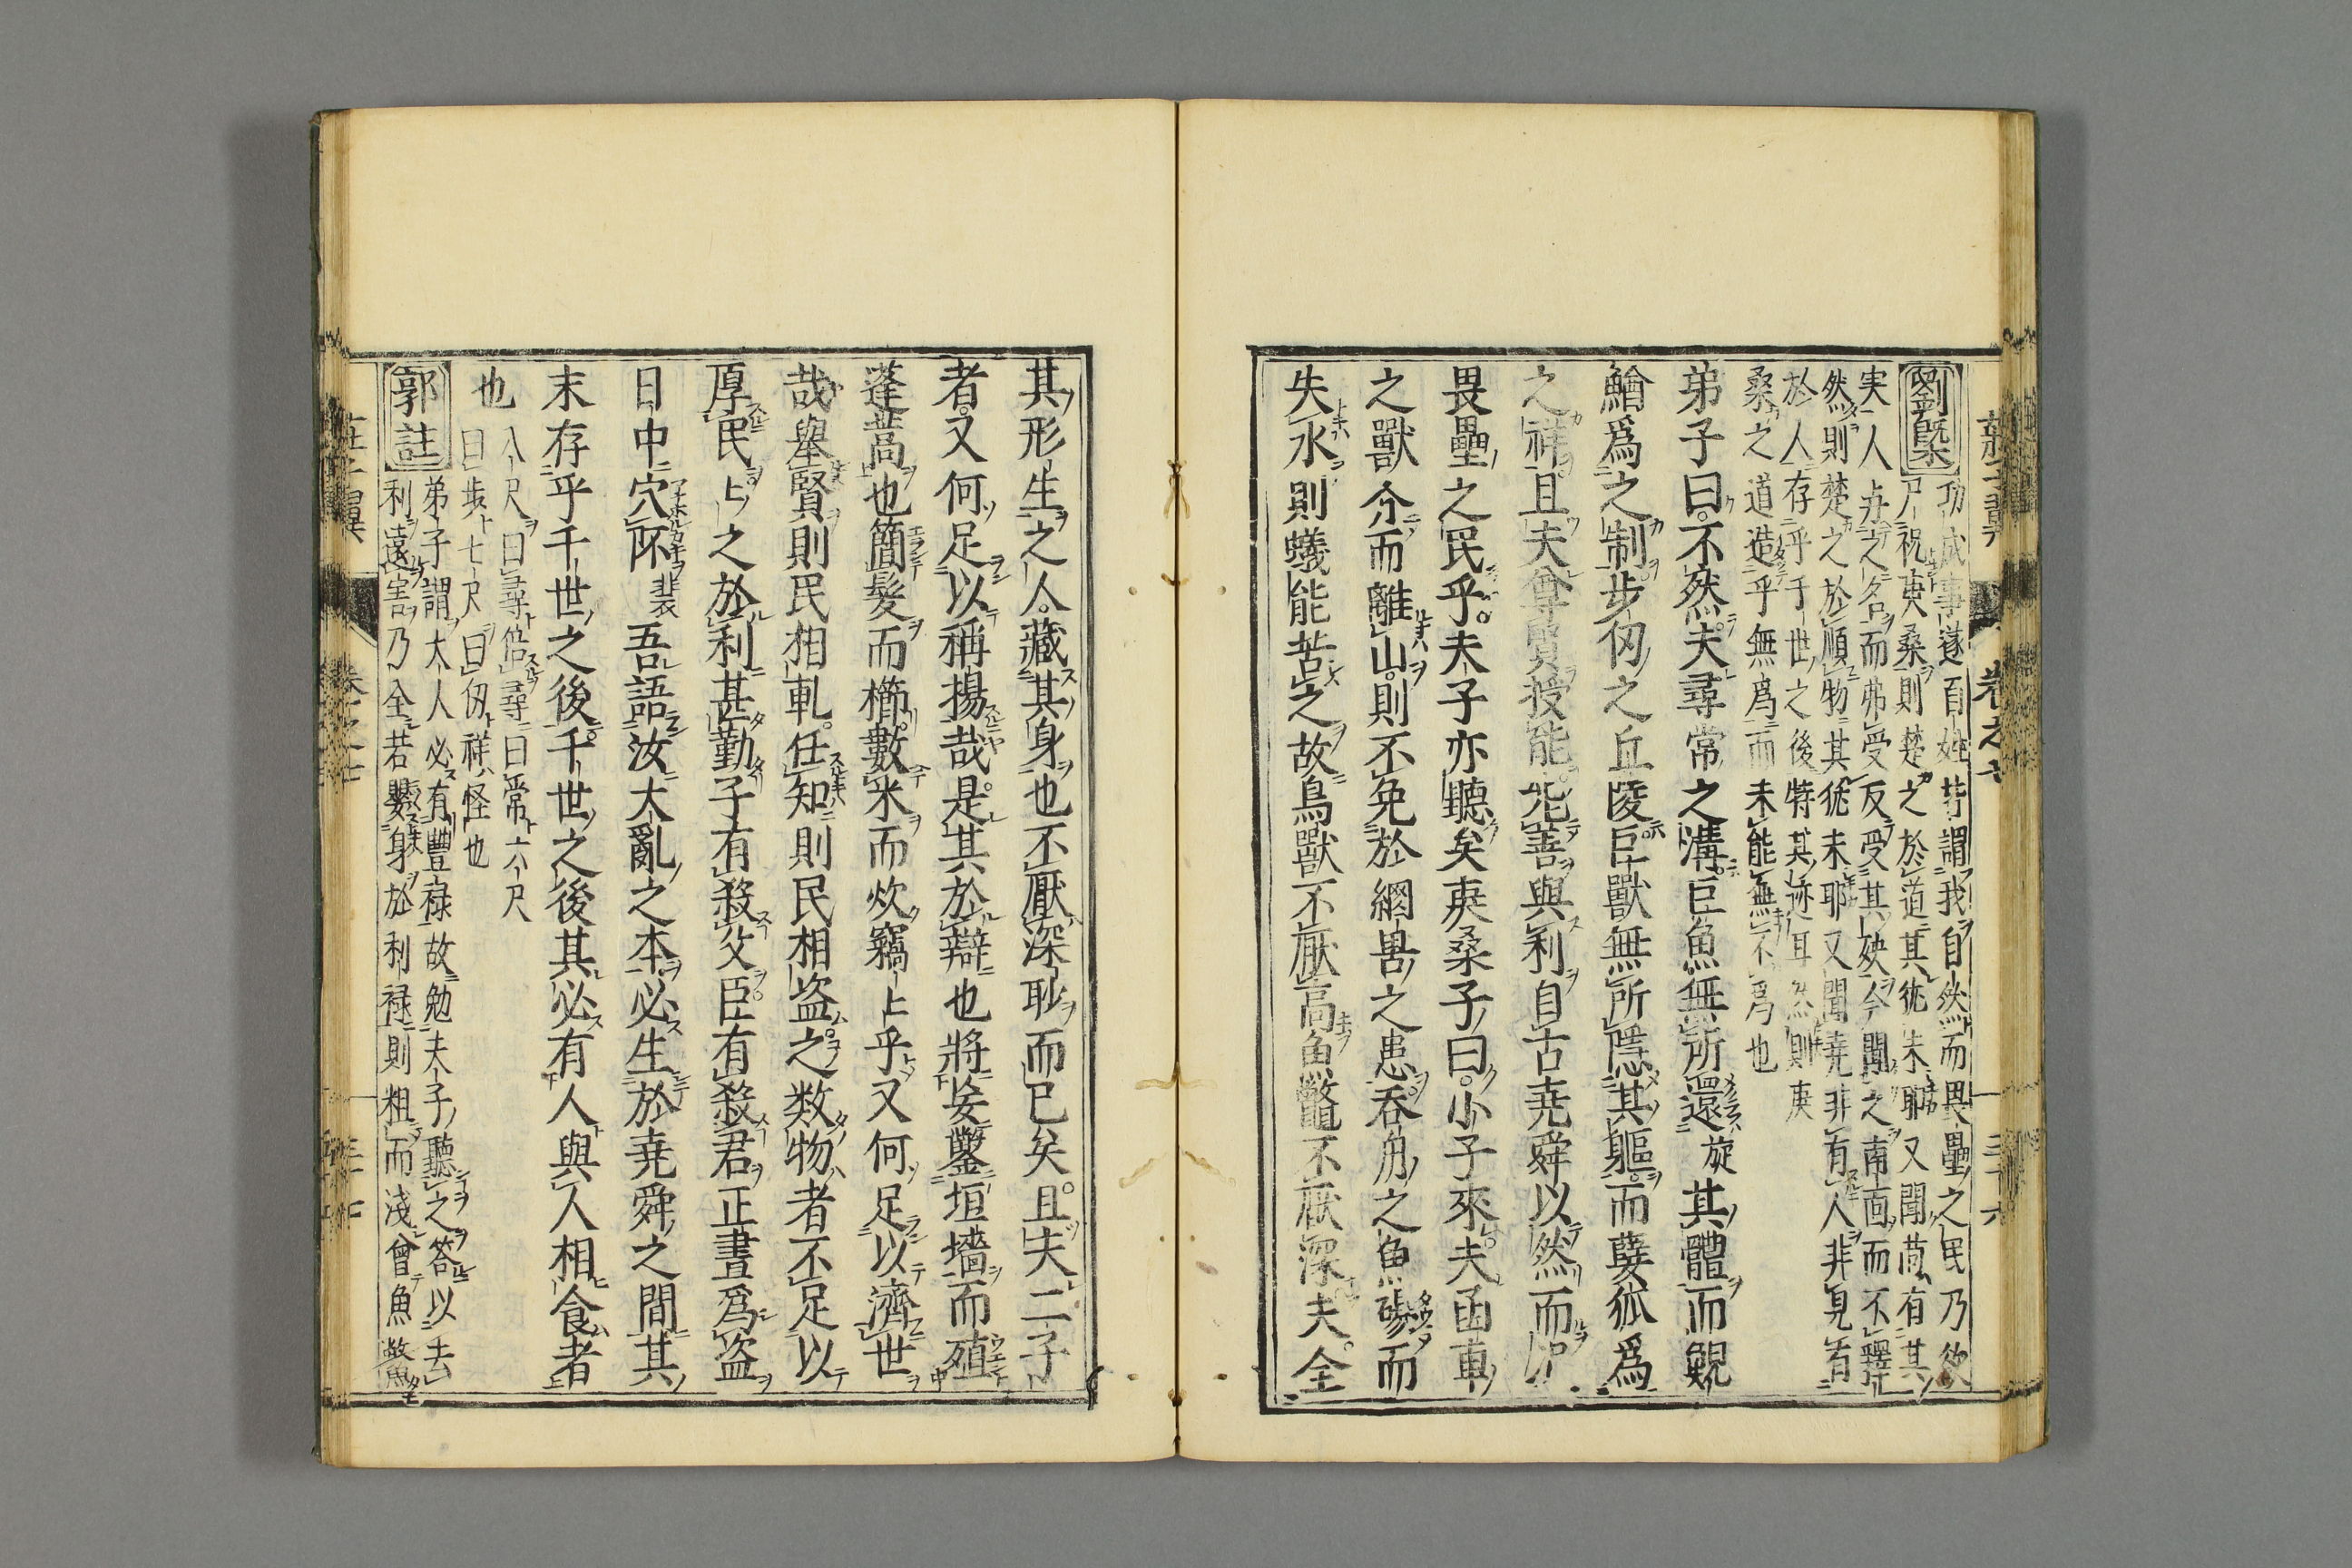 莊子翼 卷之七 三十六
劉槩 功成事遂百姓皆謂我自然而畏壘之民乃欲
尸祝庚桑則楚之於道其徒未耶又聞荀有其
実人与之名而弗受反受其殃今聞之南面而不釋
然則楚之於順物其徒未耶又聞堯非有人非見有
於人存乎千世之後特其迹耳然則庚
桑之道造乎無爲而未能無不爲也
弟子曰不然夫尋常之溝巨魚無所還旋其體而鯢
鱠爲之制步仞之丘陵巨獸無所隱其軀而孽狐爲
之祥且夫尊賢授能先善與利自古堯舜以然而况
畏壘之民乎夫子亦聽矣庚桑子曰小子來夫函車
之獸介而離山則不免於網罟之患吞舟之魚碭而
失水則蟻能苦之故鳥獸不厭高魚鼈不厭深夫全
其形生之人藏其身也不厭深眇而已矣且夫二子
者又何足以稱揚哉是其於辯也將妄鑿垣墻而殖
蓬蒿也簡髮而櫛數米而炊竊上乎又何足以濟世
哉舉賢則民相軋任知則民相盗之数物者不足以
厚民上之於利甚勤子有殺父臣有殺君正晝爲盗
日中穴阫裴吾語汝大亂之本必生於堯舜之間其
末存乎千世之後千世之後其必有人與人相食者
也 八尺曰尋倍尋曰常六尺
曰步七尺曰仞祥怪也
郭註 弟子謂大人必有豐禄故勉夫子聽之荅以去
利遠害乃全若嬰身於利禄則粗而淺曾魚鱉
莊子翼 卷之七 三十七